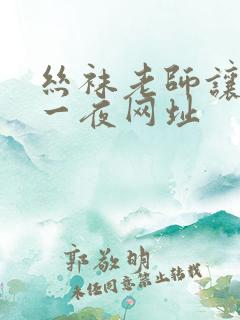 絲袜老師讓
一夜网址
郭敬明
未经同意禁止转载